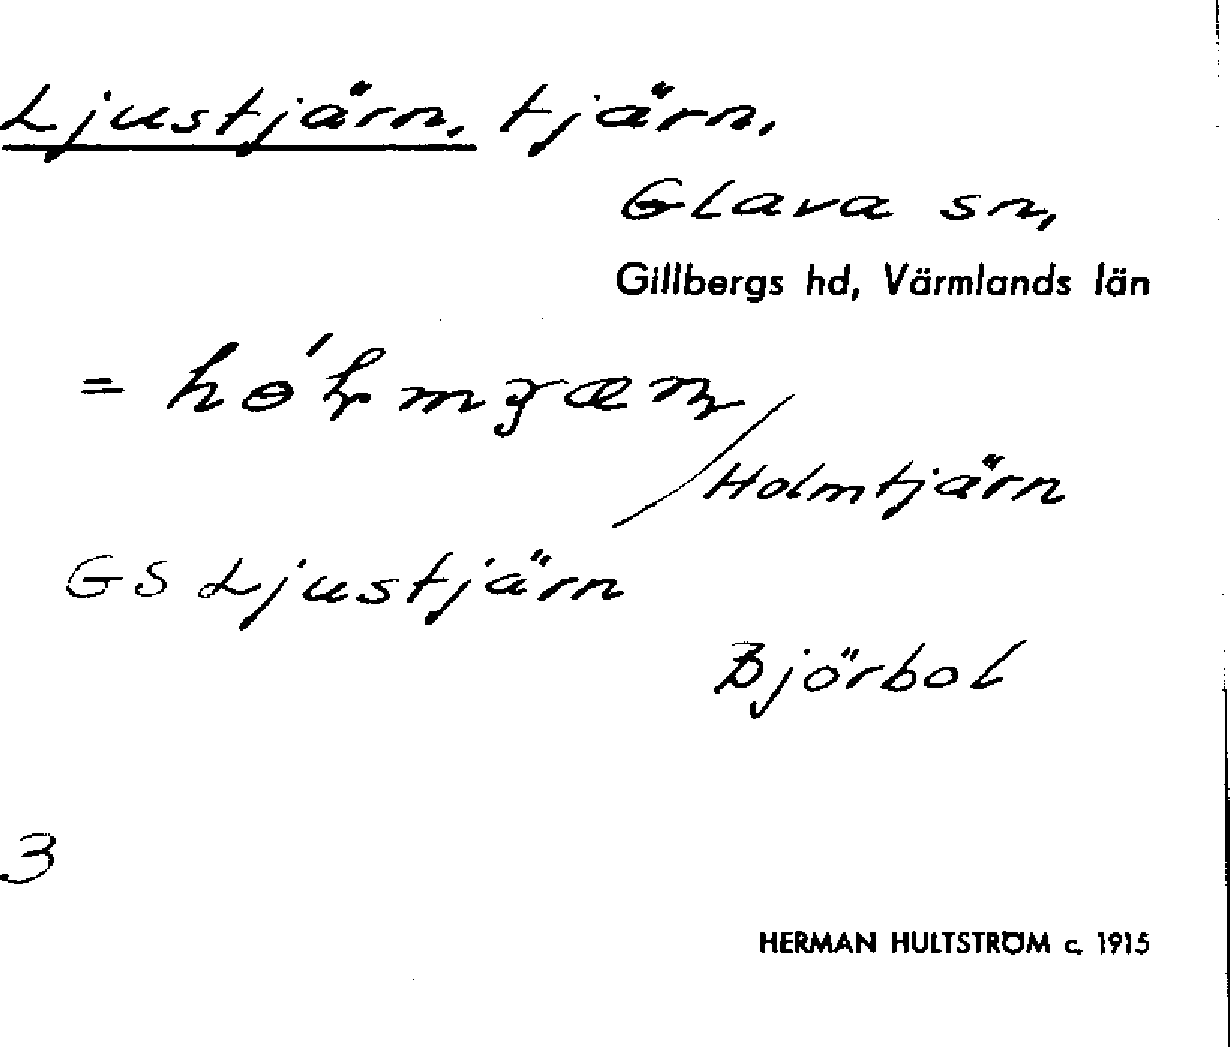 Ljustjärn, tjärn,
Glava sn,
Gillbergs hd, Värmlands län
=
Holmtjärn
GS Ljustjärn
Björbol
3
HERMAN HULTSTRÖM c. 1915